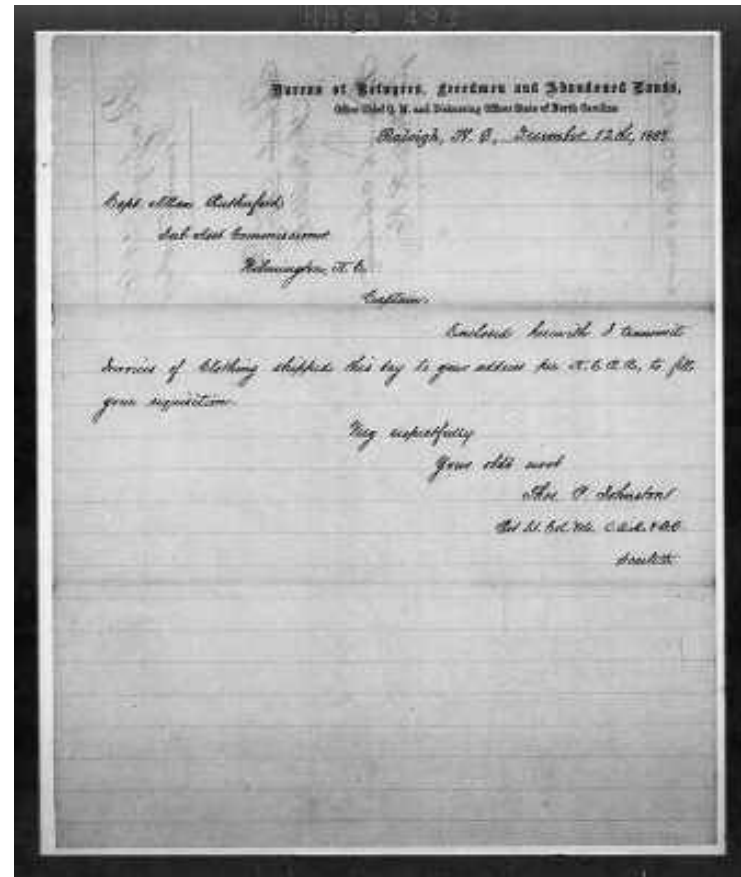 Bureau of Refugees, Freedmen and Abandoned Lands,
Office Chief Q. M. and Disbursing Officer State of North Carolina
Raleigh, N. C., December 12th, 1867
Capt Allan Rutherford
Sub Asst Commissioner
Wilmington, N. C.
Captain:
Enclosed herewith I transmit
Invoices of Clothing shipped this day to your address per N. C. R. R., to fill
your requisition.
Very respectfully
Your obdt servt
Thos P Johnston
Bvt Lt. Col. Vols.